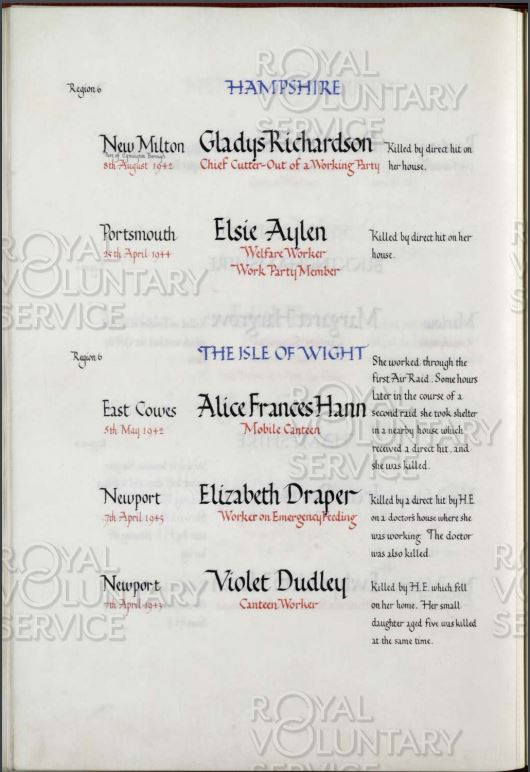 HAMPSHIRE
Region 6
New Milton
8th August 1942
Gladys Richardson
Chief Cutter-Out of a Working Party
Killed by direct hit on
her house.
Portsmouth
25th April 1944
Elsie Aylen
Welfare Worker
Work Party Member
Killed by direct hit on her
house.
THE ISLE OF WIGHT
Region 6
East Cowes
5th May 1942
Alice Frances Hann
Mobile Canteen
She worked through the
first Air Raid. Some hours
later in the course of a
second raid she took shelter
in a nearby house which
received a direct hit, and
she was killed.
Newport
7th April
Elizabeth Draper
Worker on Emergency Feeding
Killed by a direct hit by H.E.
on a doctor's house where she
was working. The doctor
was also killed.
Newport
7th April
Violet Dudley
Canteen Worker
Killed by H.E. which fell
on her home. Her small
daughter aged five was killed
at the same time.
ROYAL
VOLUNTARY
SERVICE